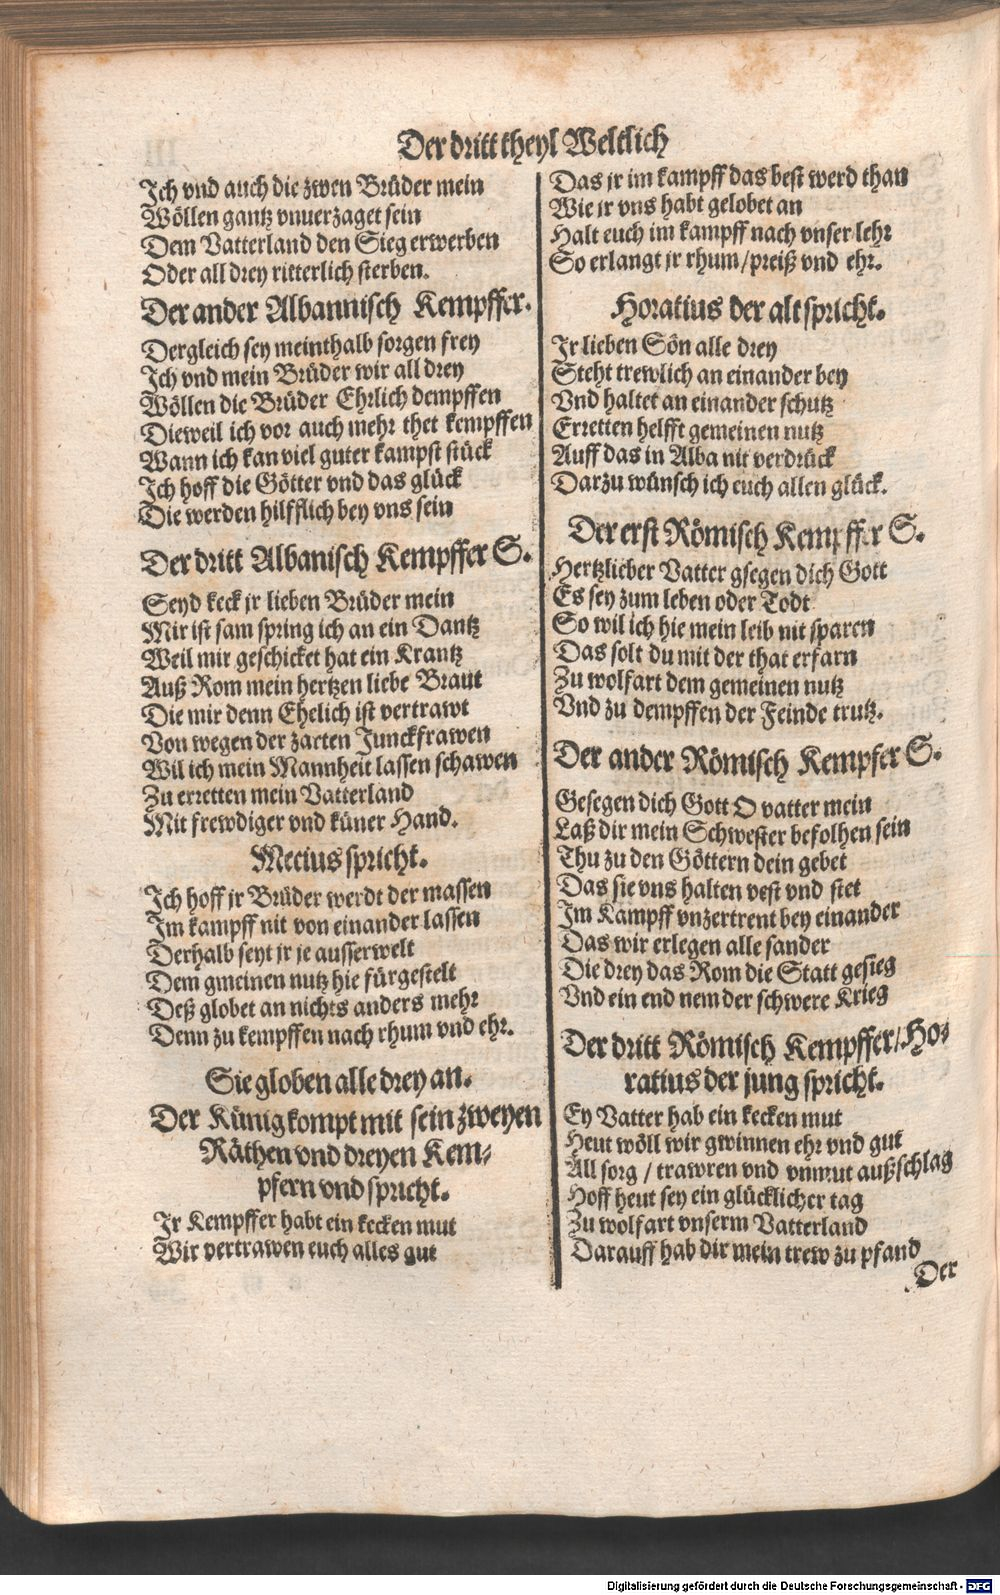 Der dritt theyl Weltlich
Ich vnd auch die zwen Brüder mein
Wöllen gantz vnuerzaget sein
Dem Vatterland den Sieg erwerben
Oder all drey ritterlich sterben.
Der ander Albannisch Kempffer.
Dergleich sey meinthalb sorgen frey
Ich vnd mein Brüder wir all drey
Wöllen die Brüder Ehrlich dempffen
Dieweil ich vor auch mehr thet kempffen
Wann ich kan viel guter kampst stück
Ich hoff die Götter vnd das glück
Die werden hilfflich bey vns sein
Der dritt Albanisch Kempffer S.
Seyd keck jr lieben Brüder mein
Mir ist sam spring ich an ein Dantz
Weil mir geschicket hat ein Krantz
Auß Rom mein hertzen liebe Braut
Die mir denn Ehelich ist vertrawt
Von wegen der zarten Junckfrawen
Wil ich mein Mannheit lassen schawen
Zu erretten mein Vatterland
Mit frewdiger vnd küner Hand.
Mecius spricht.
Ich hoff jr Brüder werdt der massen
Im kampff nit von einander lassen
Derhalb seyt jr je ausserwelt
Dem gmeinen nutz hie fürgestelt
Deß globet an nichts anders mehr
Denn zu kempffen nach rhum vnd ehr.
Sie globen alle drey an.
Der Künig kompt mit sein zweyen
Räthen vnd dreyen Kem-
pfern vnd spricht.
Ir Kempffer habt ein kecken mut
Wir vertrawen euch alles gut
Das jr im kampff das best werd than
Wie jr vns habt gelobet an
Halt euch im kampff nach vnser lehr
So erlangt jr rhum/preiß vnd ehr.
Horatius der alt spricht.
Ir lieben Sön alle drey
Steht trewlich an einander bey
Vnd haltet an einander schutz
Erretten helfft gemeinen nutz
Auff das in Alba nit verdrück
Darzu wünsch ich euch allen glück.
Der erst Römisch Kempffer S.
Hertzlieber Vatter gsegen dich Gott
Es sey zum leben oder Todt
So wil ich hie mein leib nit sparen
Das solt du mit der that erfarn
Zu wolfart dem gemeinen nutz
Vnd zu dempffen der Feinde trutz.
Der ander Römisch Kempfer S.
Gesegen dich Gott O vatter mein
Laß dir mein Schwester befolhen sein
Thu zu den Göttern dein gebet
Das sie vns halten vest vnd stet
Im Kampff vnzertrent bey einander
Das wir erlegen alle sander
Die drey das Rom die Statt gesieg
Vnd ein end nem der schwere Krieg
Der dritt Römisch Kempffer/Ho-
ratius der jung spricht.
Ey Vatter hab ein kecken mut
Heut wöll wir gwinnen ehr vnd gut
All sorg / trawren vnd vnmut außschlag
Hoff heut sey ein glücklicher tag
Zu wolfart vnserm Vatterland
Darauff hab dir mein trew zu pfand
Der
Digitalisierung gefördert durch die Deutsche Forschungsgemeinschaft - DFG